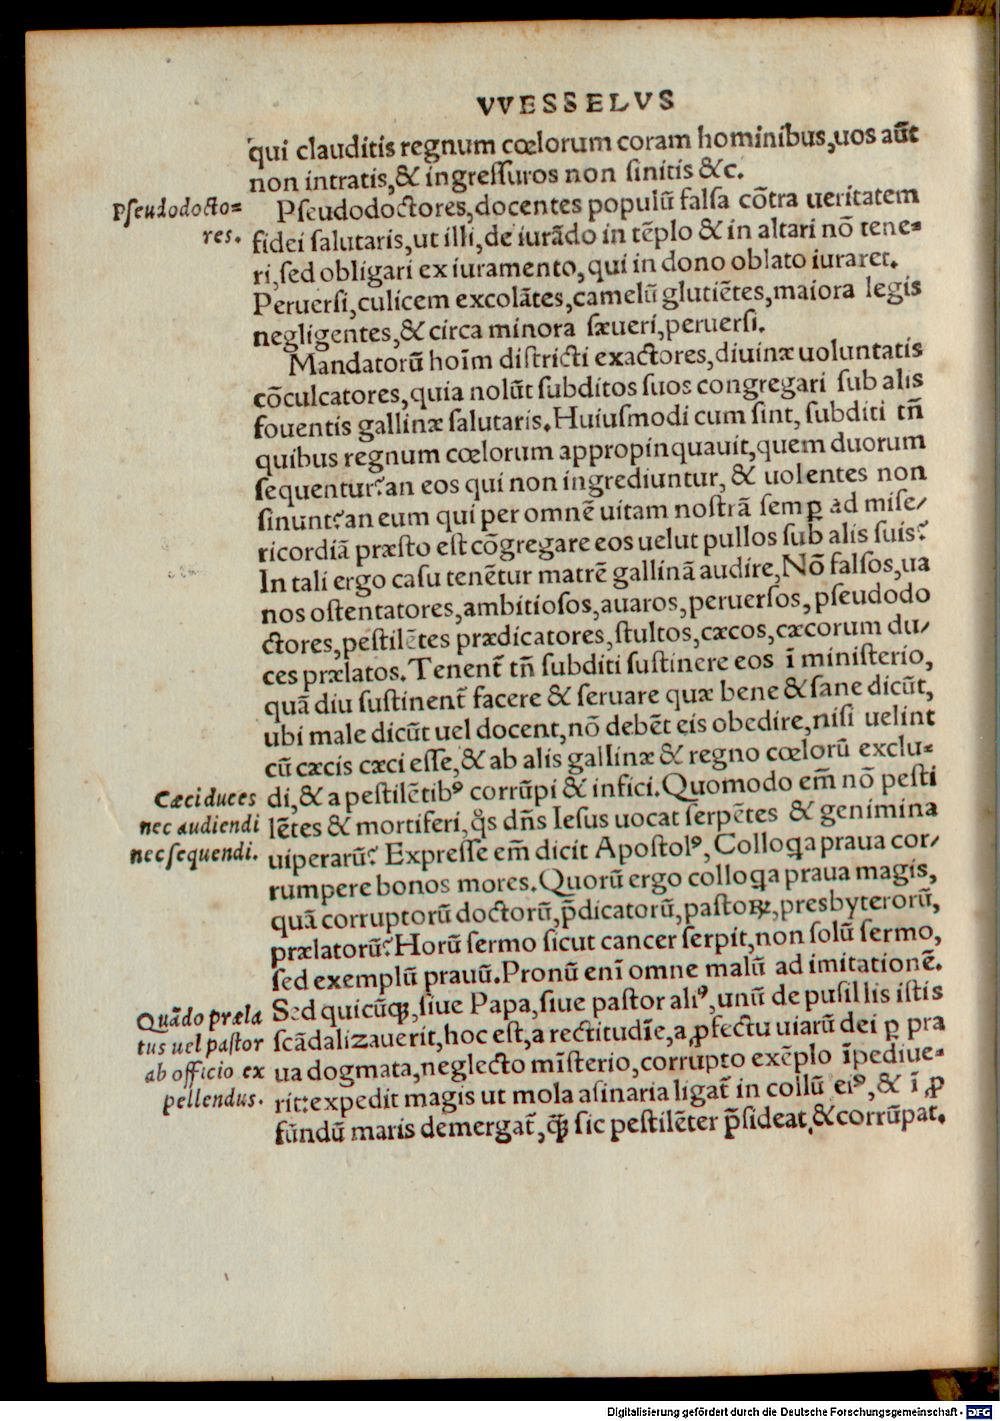 VVESSELVS
qui clauditis regnum cœlorum coram hominibus,uos aūt
non intratis,& ingreſſuros non ſinitis &c.
Pſeudodocto=
res.
Pſeudodoctores,docentes populū falſa cōtra ueritatem
fidei ſalutaris,ut illi,de iurādo in tēplo & in altari nō tene-
ri,ſed obligari ex iuramento,qui in dono oblato iuraret.
Peruerſi,culicem excolātes,camelū glutiētes,maiora legis
negligentes,& circa minora ſæueri,peruerſi.
Mandatorū hoīm diſtricti exactores,diuinæ uoluntatis
cōculcatores,quia nolūt ſubditos ſuos congregari ſub alis
fouentis gallinæ ſalutaris.Huiuſmodi cum ſint, ſubditi tn̄
quibus regnum cœlorum appropinquauit,quem duorum
ſequentur?an eos qui non ingrediuntur, & uolentes non
ſinunt?an eum qui per omnē uitam noſtrā ſemꝑ ad miſe/
ricordiā præſto eſt cōgregare eos uelut pullos ſub alis ſuis?
In tali ergo caſu tenētur matrē gallinā audire,Nō falſos,ua
nos oſtentatores,ambitioſos,auaros,peruerſos,pſeudodo
ctores,peſtilētes prædicatores,ſtultos,cæcos,cæcorum du/
ces prælatos.Tenent̄ tn̄ ſubditi ſuſtinere eos ī miniſterio,
quā diu ſuſtinent̄ facere & ſeruare quæ bene & ſane dicūt,
ubi male dicūt uel docent,nō debēt eis obedire,niſi uelint
cū cæcis cæci eſſe,& ab alis gallinæ & regno cœlorū exclu-
Cæci duces
nec audiendi
nec ſequendi.
di,& a peſtilētibꝰ corrūpi & infici.Quomodo em̄ nō peſti
lētes & mortiferi,q̊s dn̄s Ieſus uocat ſerpētes & genimina
uiperarū? Expreſſe em̄ dicit Apoſtolꝰ, Colloq̄a praua cor/
rumpere bonos mores.Quorū ergo colloq̄a praua magis,
quā corruptorū doctorū,p̄dicatorū,paſtoꝝ,presbyterorū,
prælatorū?Horū ſermo ſicut cancer ſerpit,non ſolū ſermo,
ſed exemplū prauū.Pronū enī omne malū ad imitationē.
Quādo præla
tus uel paſtor
ab officio ex
pellendus.
Sed quicūqꝫ,ſiue Papa,ſiue paſtor aliꝰ,unū de puſillis iſtis
ſcādalizauerit,hoc eſt,a rectitudīe,a ꝓfectu uiarū dei ꝑ pra
ua dogmata,neglecto mīſterio,corrupto exēplo īpediue-
rit:expedit magis ut mola aſinaria ligat̄ in collū eiꝰ,& ī ꝓ
fūndū maris demergat̄,q̄ꝫ ſic peſtilēter p̄ſideat,&corrūpat.
Digitalisierung gefördert durch die Deutsche Forschungsgemeinschaft - DFG